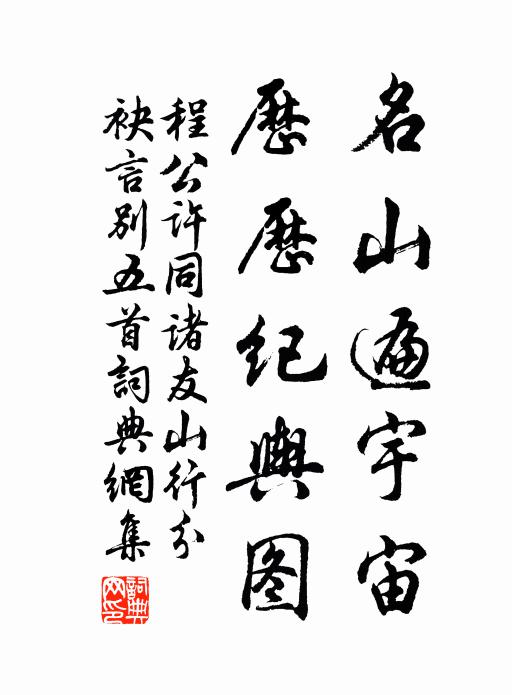 名山遍宇宙
歷歷紀輿图
程公許同諸友山行分
袂言別五首詞典網集
詞典